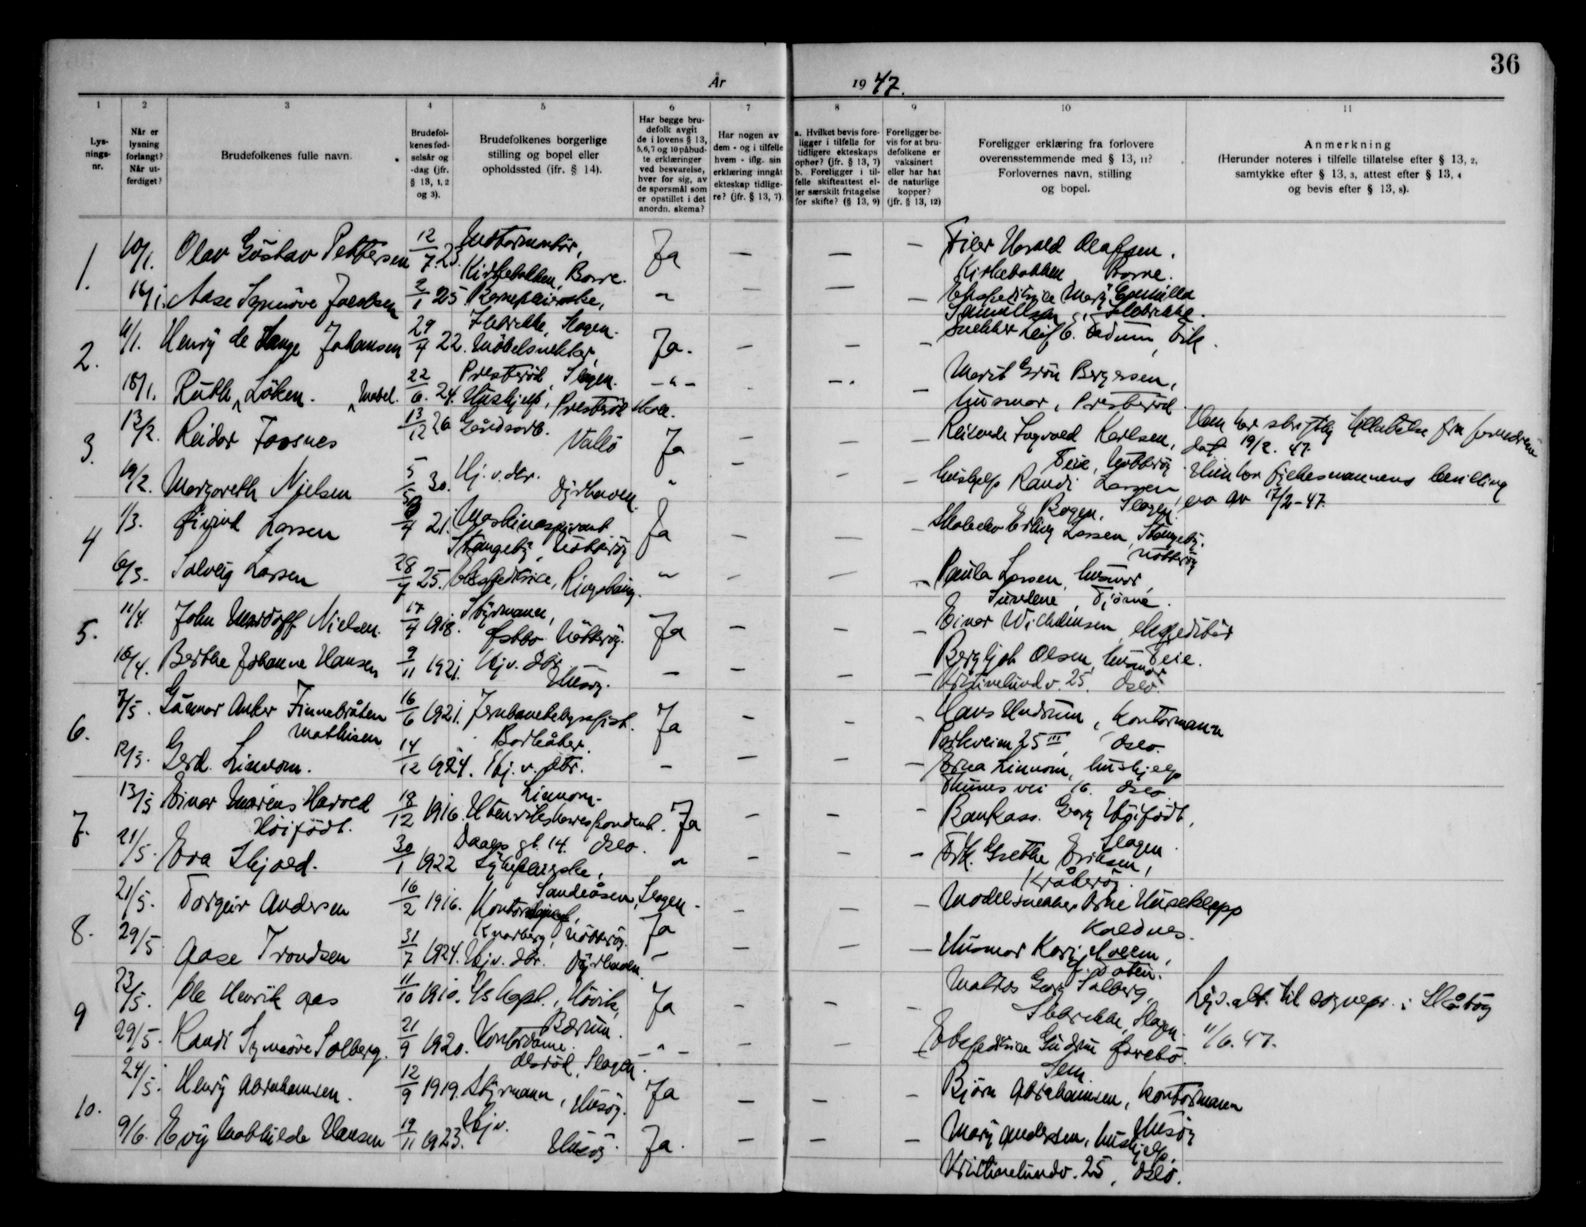 36
År 1947.
1 2 3 4 5 6 7 8 9 10 11
Lysnings-nr.
Når er lysning forlangt? Når utferdiget?
Brudefolkenes fulle navn.
Brudefolkenes fødselsår og -dag (jfr. § 13, 1, 2 og 3).
Brudefolkenes borgerlige stilling og bopel eller opholdssted (jfr. § 14).
Har begge brudefolk avgit de i lovens § 13, 5, 6, 7 og 10 påbudte erklæringer ved besvarelse, hver for sig, av de spørsmål som er opstillet i det anordn. skema?
Har nogen av dem - og i tilfelle hvem - iflg. sin erklæring inngått ekteskap tidligere? (jfr. § 13, 7)
a. Hvilket bevis foreligger i tilfelle for tidligere ekteskaps ophør? (jfr. § 13, 7)
b. Foreligger i tilfelle skifteattest eller særskilt fritagelse for skifte? (§ 13, 9)
Foreligger bevis for at brudefolkene er vaksinert eller har hat de naturlige kopper? (jfr. § 13, 12)
Foreligger erklæring fra forlovere overensstemmende med § 13, 11? Forlovernes navn, stilling og bopel.
Anmerkning
(Herunder noteres i tilfelle tillatelse efter § 13, 2, samtykke efter § 13, 3, attest efter § 13, 4 og bevis efter § 13, 8).
1.
10/1. Olav Gustav Pettersen 12/7 23. Motormontør, Kirkebakken, Borre. Ja — — — Filer Harald Olafsen, Kirkebakken Borre.
Aase Synnøve Jacobsen 2/1 25 Barnepleierske, Ilebrekke, Slagen. " — — — Ekspeditrice Mary Ilebrekke.
2.
Henry de Lange Johansen 29/4 22. Møbelsnekker, Presterød, Slagen. Ja. — — — Snekker Leif E. Eik.
18/1. Ruth Løken. 22/6. 24. Hushjelp, Presterød — " — — Marit Grøn Bergersen, Husmor, Presterød
3.
13/2. Reidar Foosnes 13/12 26 Gårdsarb. Vallø Ja — — — Reisende Karlsen, Teie, Nøtterøy
Han har skriftlig tillatelse fra foreldrene dat 19/2. 47.
19/2. Margareth Nielsen 5/5 30. Hj. v. dtr. " — — — Hushjelp Randi Larsen, Bogen, Slagen
Hun har fylkesmannens bevilling av 17/2-47.
4
1/3. Øivind Larsen 21. Maskinaspirant Nøtterøy Ja — — — Erling Larsen, Nøtterøy
6/3. Solveig Larsen 28/7 25. Ekspeditrice, Ringshaug. " — — — Paula Larsen, husmor, Sundene, Tjøme.
5.
11/4. John Nielsen. 17/4 1918. Styrmann, Nøtterøy. Ja — — — Einar Wilhelmsen, ekspeditør Teie.
16/4. Berthe Johanne Hansen 9/11 1921. Hj. v. dtr. Husøy. — — — — Bergljot Olsen, husmor Kristinelundv. 25, Oslo.
6.
7/5. Gunnar Anker Finnebråten Mathisen 16/6 1921. Jernbanetelegrafist. Ja — — — Hans Undrum, kontormann Parkveien 25 III, Oslo.
12/5. Gerd Linnom. 14/12 1924. Hj. v. dtr. Linnom. — — — — Erna Linnom, hushjelp Thunes vei 16. Oslo
7.
13/5 Einar Harald Høifødt. 19/12 1916. Utenrikskorrespondent. Daas gt. 14. Oslo. Ja — — Georg Høifødt, Slagen.
21/5. Eva Skjold. 30/1 1922 Sykepleierske, Sandeåsen, Slagen. " — — — Frk. Grethe Eriksen, Kråkerøy.
8.
21/5. Torgeir Andersen 16/2 1916. Knarberg, Nøtterøy. Ja — — — Modellsnekker Arne Huseklepp Kaldnes.
29/5 Aase Trondsen 31/7 1924. Hj. v. dtr. " — — — Husmor Kari
9
23/5. Ole Henrik Aas 11/10 1910. Høvik, Bærum. Ja — — — Georg Solberg, Ilebrekke, Slagen.
Lys. att. til sognepr. i Skåtøy
29/5. Randi Synnøve Solberg. 21/9 1920. Kontordame. Slagen. — " — — — Ekspeditrice Gudrun Sem
11/6. 47.
10.
24/5. Henry Abrahamsen. 12/9 1919. Styrmann, Husøy. Ja — — — Bjørn Abrahamsen, kontormann Husøy
9/6. Evy Mathilde Hansen 19/11 1923. Hj. v. Husøy Ja. — — — Mary Andersen, hushjelp, Kristinelundv. 25, Oslo.